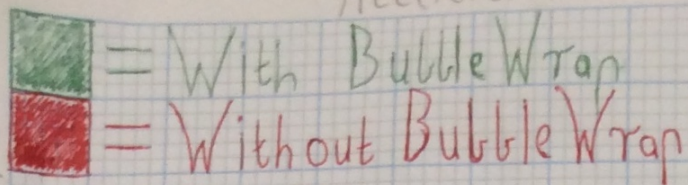 = With Bubble Wrap
= Without Bubble Wrap